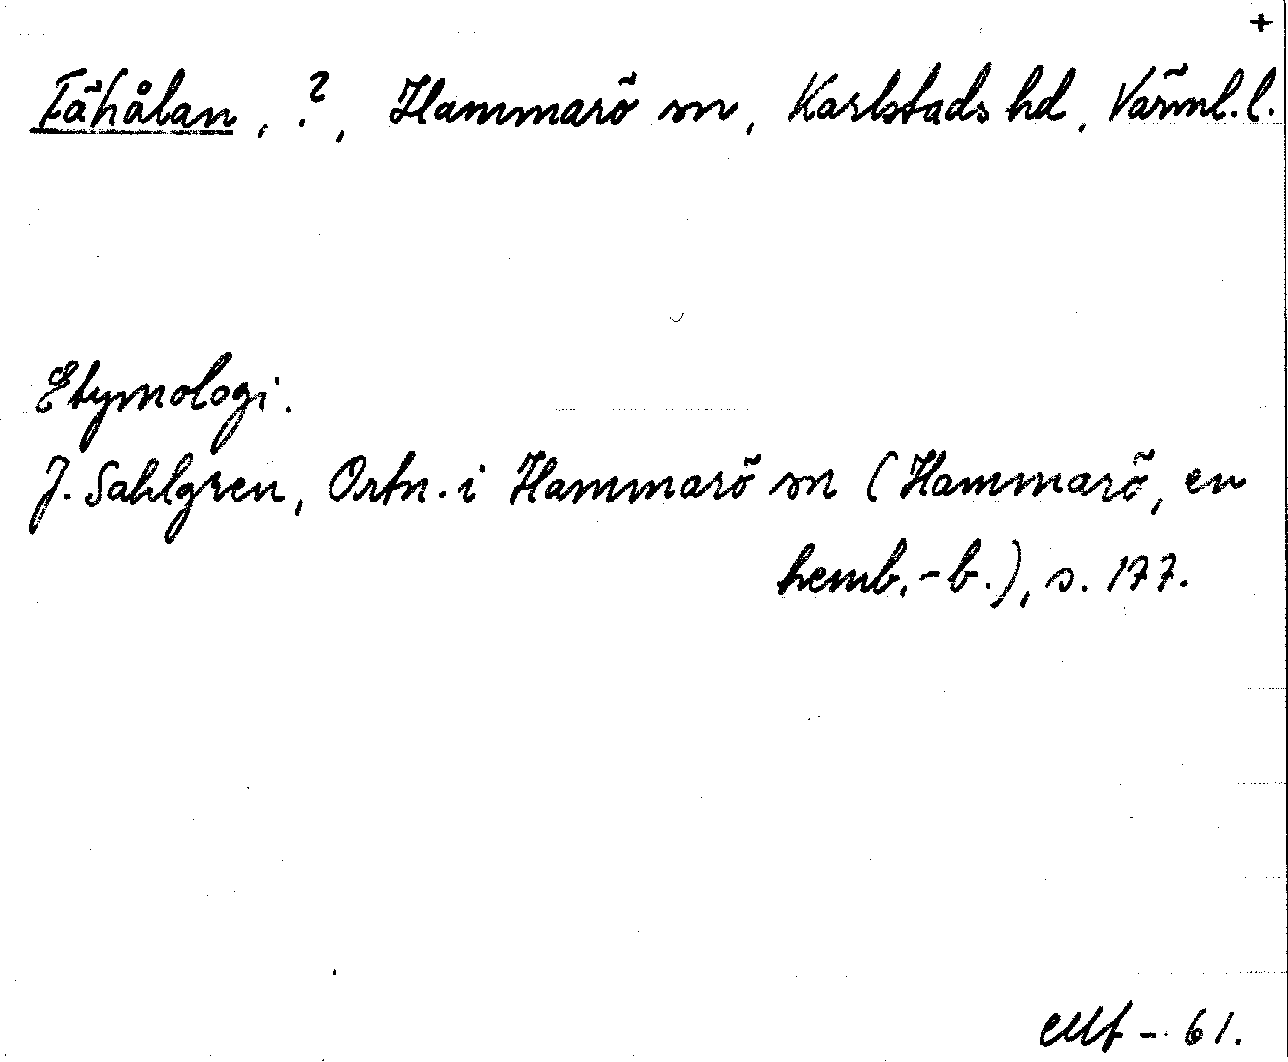 +
Fähålan, ?, Hammarö sn, Karlstads hd, Värml. l.
Etymologi.
J. Sahlgren, Ortn. i Hammarö sn (Hammarö, en
hemb.-b.), s. 177.
- 61.